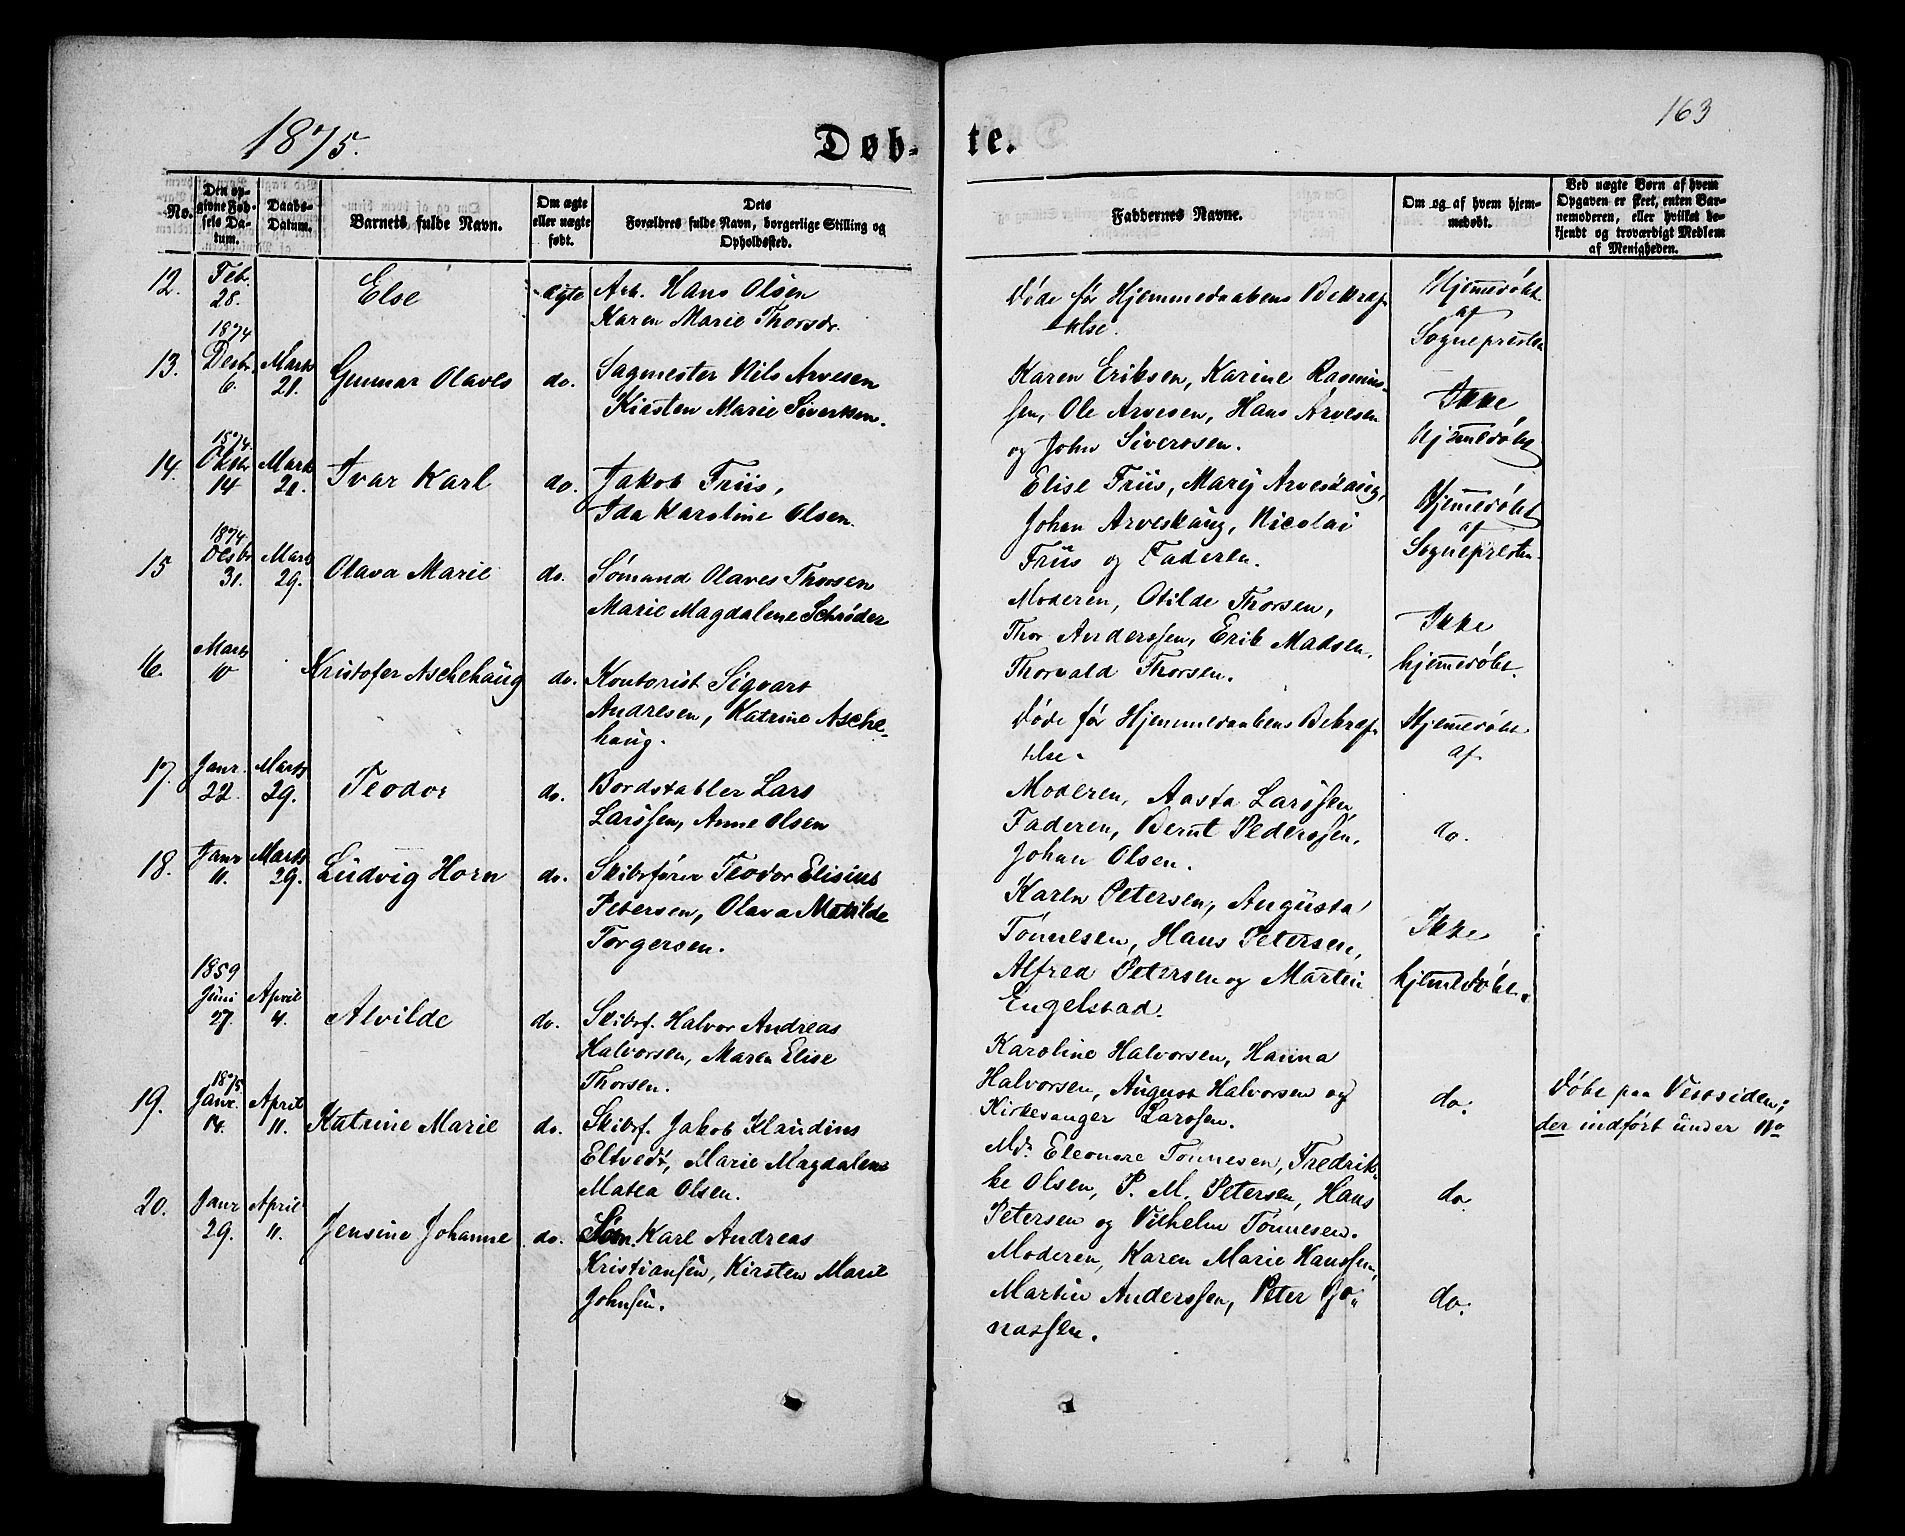 163
1875.
Døb-
te.
No.
Den op-
givne Fød-
sels Da-
tum.
Daabs-
Datum.
Barnets fulde Navn.
Om ægte
eller uægte
født.
Dets
Forældres fulde Navn, borgerlige Stilling og
Opholdssted.
Faddernes Navne.
Om og af hvem hjem-
medøbt.
Ved uægte Børn af hvem
Opgaven er skeet, enten Bar-
nemoderen, eller hvilket be-
kjendt og troværdigt Medlem
af Menigheden.
12.
Feb.
28.
Else
ægte
Arb. Hans Olsen
Karen Marie Thorsdr.
Døde før Hjemmedaabens Bekræf-
telse.
Hjemedøbt
af
Sognepresten
13.
1874
Desbr.
6.
Marts
21.
Gunnar Olaves
do.
Sagmester Nils Arvesen
Kirsten Marie Siversen.
Karen Eriksen, Karine Rasmus-
sen, Ole Arvesen, Hans Arvesen
og John Siversen.
Ikke
hjemedøbt
14.
1874.
Oktbr
14
Marts
21.
Ivar Karl
do.
Jakob Friis,
Ida Karoline Olsen.
Elise Friis, Marij Arveskaug,
Johan Arveskaug, Nicolai
Friis og Faderen.
Hjemedøbt
af
Sognepresten.
15
1874.
31.
Marts
29.
Olava Marie
do.
Sømand Olaves Thorsen
Marie Magdalene Schrøder
Moderen, Otilde Thorsen,
Thor Anderssen, Erik Madsen,
Thorvald Thorsen.
Ikke
hjemedøbt.
16.
Marts
10
Kristofer Aschehaug
do.
Kontorist Sigvart
Andresen, Katrine Asche-
haug.
Døde før Hjemmedaabens Bekræf-
telse.
Hjemedøbt
af
17.
Janr.
22.
Marts
29.
Teodor
do.
Bordstabler Lars
Larssen, Anne Olsen
Moderen, Aasta Larssen,
Faderen, Bernt Pederssen,
Johan Olsen.
do.
18.
Janr
11.
Marts
29.
Ludvig Horn
do.
Skibsfører Teodor Elisius
Petersen, Olava Matilde
Torgersen.
Karen Petersen, Augusta
Tönnesen, Hans Petersen,
Alfred Petersen og Martin
Engelstad.
Ikke
hjemedøbt.
1859
Juni
27.
April
4.
Alvilde
do.
Skibsf. Halvor Andreas
Halvorsen, Maren Elise
Thorsen.
Karoline Halvorsen, Hanna
Halvorsen, August Halvorsen og
Kirkesanger Larssen.
do.
Døbt paa Vissiden;
der indført under No
19.
1875.
Janr.
14.
April
11.
Katrine Marie
do.
Skibsf. Jakob Klaudius
Eltvedt, Marie Magdalene
Matea Olsen.
Md. Eleonore Tönnesen, Fredrik-
ke Olsen, P. M. Petersen, Hans
Petersen og Vilhelm Tönnesen.
do.
20.
Janr
29.
April
11.
Jensine Johanne
do.
Søm. Karl Andreas
Kristiansen, Kirsten Marie
Johnsen.
Moderen, Karen Marie Hanssen,
Martin Anderssen, Peter Jo-
nassen.
do.